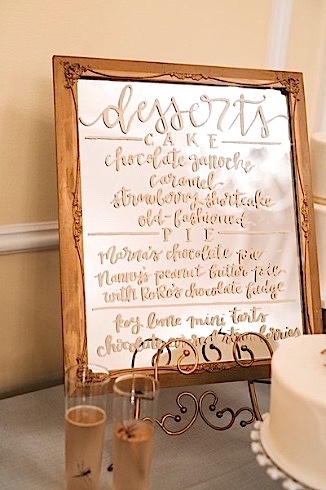 desserts
CAKE
chocolate ganache
caramel
strawberry shortcake
old-fashioned
PIE
Mama's chocolate pie
Nanny's peanut butter pie
with KoKo's chocolate fudge
key lime mini tarts
chocolate covered strawberries